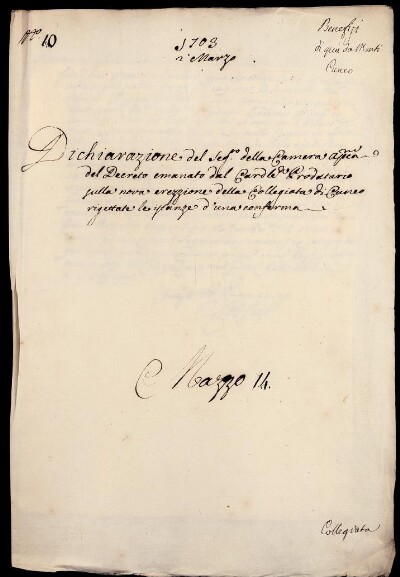 N.ro 10
Benefizi
di quà da Monti
Cuneo
1703
2 Marzo
Dichiarazione del Seg.ro della Camera Ap.ca
del Decreto emanato dal Card.le Prodatario
sulla nova erezzione della Collegiata di Cuneo
rigettate le istanze d'una conferma
Mazzo 14.
Collegiata